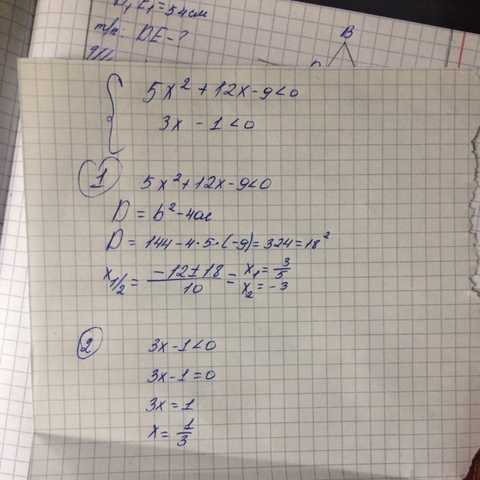 D₁E₁=54см
DE-?
B
{ 5x² + 12x - 9 < 0
3x - 1 < 0
1 5x² + 12x - 9 < 0
D = b² - 4ac
D = 144 - 4 · 5 · (-9) = 324 = 18²
x₁/₂ = (-12 ± 18)/10 = x₁ = 3/5
x₂ = -3
2 3x - 1 < 0
3x - 1 = 0
3x = 1
x = 1/3